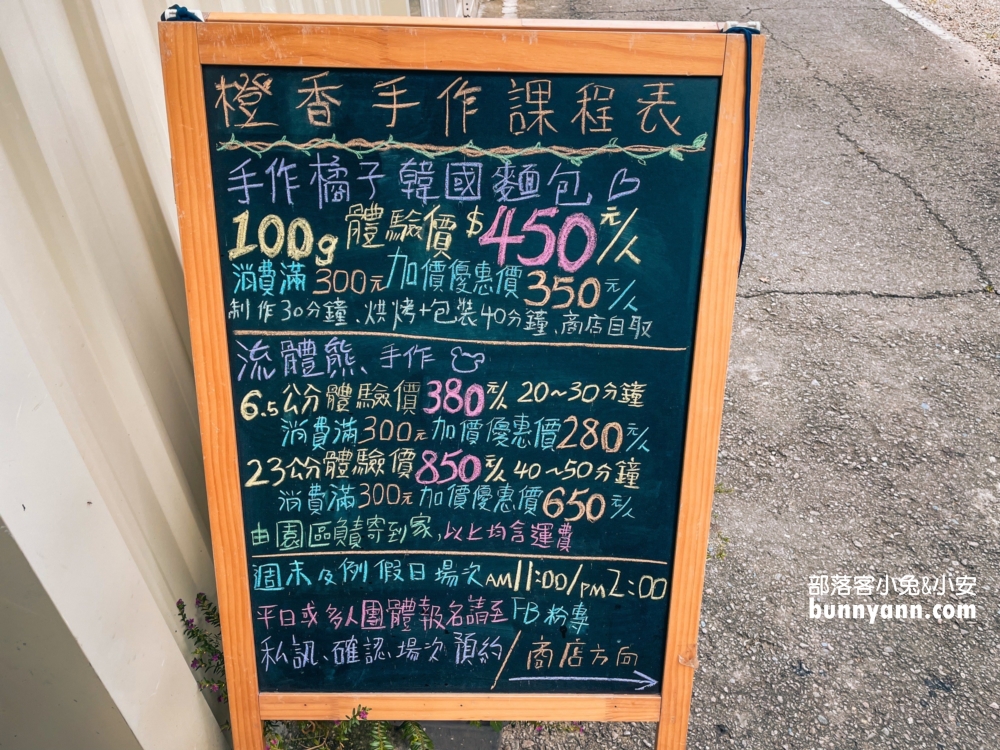 橙香手作課程表
手作橘子韓國麵包
100g 體驗價 $450元/人
消費滿300元加價優惠價350元/人
制作30分鐘、烘烤+包裝40分鐘、商店自取
流體熊 手作
6.5公分體驗價380元/人 20~30分鐘
消費滿300元加價優惠價280元/人
23公分體驗價850元/人 40~50分鐘
消費滿300元加價優惠價650元/人
由園區負責寄到家,以上均含運費
週末及例假日場次AM11:00/PM2:00
平日或多人團體報名請至FB粉專
私訊、確認場次預約/商店方向
部落客小兔&小安
bunnyann.com